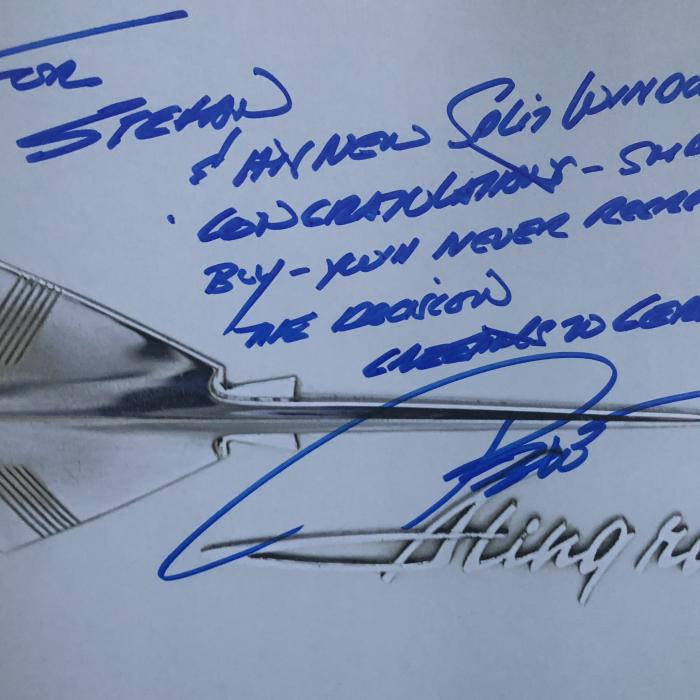 FOR
STEFAN
& HIS NEW SPLIT WINDO
CONGRATULATIONS - SU
BUY - YOU'LL NEVER REGRE
THE DECISION
GREETINGS TO GER
Stingra